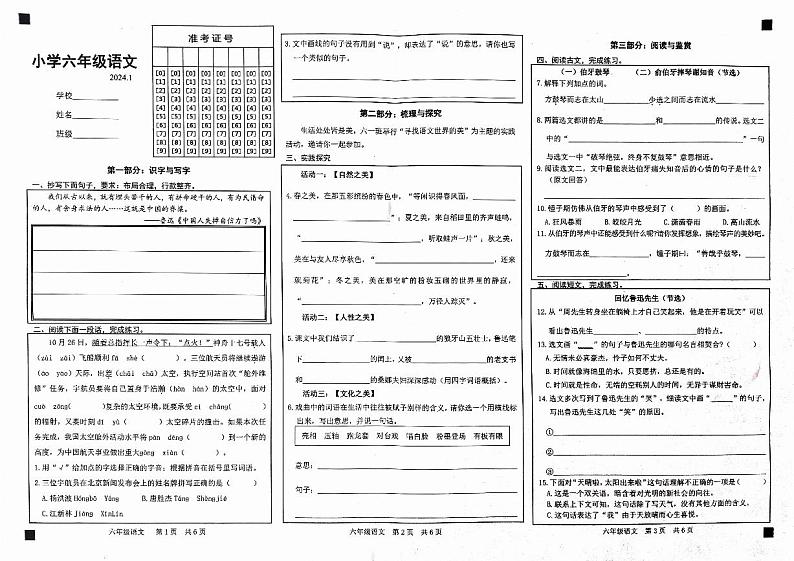 小学六年级语文
2024.1
学校
姓名
班级
准考证号
[0] [0] [0] [0] [0] [0] [0] [0]
[1] [1] [1] [1] [1] [1] [1] [1]
[2] [2] [2] [2] [2] [2] [2] [2]
[3] [3] [3] [3] [3] [3] [3] [3]
[4] [4] [4] [4] [4] [4] [4] [4]
[5] [5] [5] [5] [5] [5] [5] [5]
[6] [6] [6] [6] [6] [6] [6] [6]
[7] [7] [7] [7] [7] [7] [7] [7]
[8] [8] [8] [8] [8] [8] [8] [8]
[9] [9] [9] [9] [9] [9] [9] [9]
第一部分：识字与写字
一、抄写下面句子，要求：布局合理，行款整齐。
我们从古以来，就有埋头苦干的人，有拼命硬干的人，有为民请命
的人，有舍身求法的人……这就是中国的脊梁。
——鲁迅《中国人失掉自信力了吗》
二、阅读下面一段话，完成练习。
10月26日，随着总指挥长一声令下：“点火！”神舟十七号载人
（zài zǎi）飞船顺利 fā shè（ ）。三位航天员将继续遨游
（áo yáo）天际，出差（chāi chā）太空，执行空间站首次“舱外维
修”任务，宇航员要将自己置身于浩瀚（hàn hàn）的太空中，面对
cuò zōng（ ）复杂的太空环境，既要承受 cì cháng（ ）
的辐射，又要时刻 dī yù（ ）太空碎片的撞击。如果本次任
务完成，我国太空舱外活动水平将 pān dēng（ ）到一个新的
高度，为中国航天事业做出重大 gòng xiàn（ ）。
1.用“√”给加点的字选择正确的字音；根据拼音在括号里写词语。
2.三位宇航员在北京新闻发布会上的姓名牌拼写正确的是（ ）
A.杨洪波 Hóngbō Yáng B.唐胜杰 Táng Shèngjié
C.江新林 Jiāng XīnLín
六年级语文 第1页 共6页
3.文中画线的句子没有用到“说”，却表达了“说”的意思，请你也写
一个类似的句子。
第二部分：梳理与探究
生活处处皆是美，六一班举行“寻找语文世界的美”为主题的实践
活动，邀请你一起参加。
三、实践探究
活动一：【自然之美】
4.春之美，在那五彩缤纷的春色中，“等闲识得春风面，
”；夏之美，来自稻田里的齐声蛙鸣，
“ ，听取蛙声一片”；秋之美，
美在与友人尽享秋色，“ ，还来
就菊花”；冬之美，美在那空旷的粉妆玉砌的世界里的静寂，
“ ，万径人踪灭”。
活动二：【人性之美】
5.课文中我们结识了 的狼牙山五壮士，鲁迅笔
下 的闰土，又被 的老支书
和 的桑娜夫妇深深感动（用四字词语概括）。
活动三：【文化之美】
6.戏曲中的词语在生活中往往被赋予别样的含义，请你选一个用横线标
出来，写出意思，并说一句话。
亮相 压轴 跑龙套 对台戏 唱白脸 粉墨登场 有板有眼
意思：
句子：
六年级语文 第2页 共6页
第三部分：阅读与鉴赏
四、阅读古文，完成练习。
（一）伯牙鼓琴 （二）俞伯牙摔琴谢知音（节选）
7.解释下列加点的词。
方鼓琴而志在太山 少选之间而志在流水
8.两篇选文都讲的是 和 的传说。选文二
中的“ ”一句
与选文一中“破琴绝弦，终身不复鼓琴”意思相近。
9.阅读选文二，文中最能表达伯牙痛失知音后的心情的句子是什么？
（原文回答）
10.锺子期仿佛从伯牙的琴声中感受到了（ ）的画面。
A.狂风暴雨 B.皎皎月光 C.潇潇春雨 D.高山流水
11.从伯牙的琴声中还能感受到什么呢？请你发挥想象，描绘琴声的美妙吧。
方鼓琴而志在 ，锺子期曰：“善哉乎鼓琴，
。
五、阅读短文，完成练习。
回忆鲁迅先生（节选）
12.从“周先生转身坐在躺椅上才自己笑起来，他是在开着玩笑”可以
看出鲁迅先生 、 的特点。
13.选文画“ ”的句子与鲁迅先生的哪句名言相契合？（ ）
A.无情未必真豪杰，怜子如何不丈夫。
B.时间就像海绵里的水，只要愿挤，总还是有的。
C.时间就是性命，无端的空耗别人的时间，无异于谋财害命。
14.选文多次写到了鲁迅先生的“笑”，细读文中画“ ”的句子，
写出鲁迅先生这几处“笑”的原因。
①
②
③
15.下面对“天晴啦，太阳出来啦”这句话理解不正确的一项是（ ）
A.这是一个双关语，暗含着对光明的新社会的向往。
B.联系上下文可知，这句话除了写天气，没有其他方面的含义。
C.这句话表达了“我”由于天放晴而心生喜悦。
六年级语文 第3页 共6页